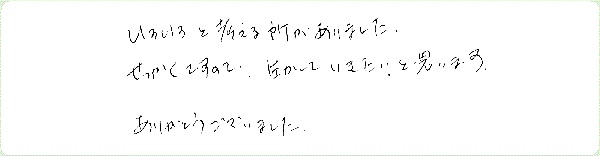 いろいろと考える所がありました。
せっかくですので、生かしていきたいと思います。
ありがとうございました。